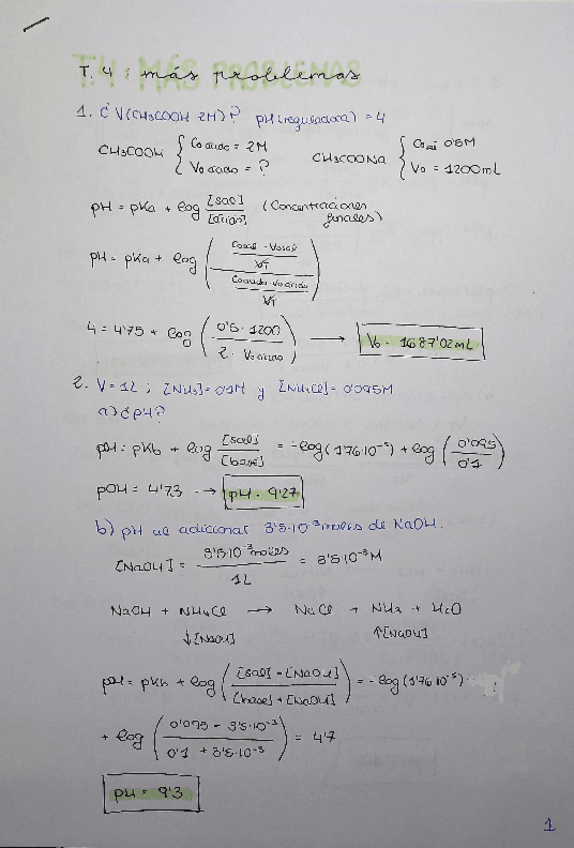 T.4: más problemas
1. ¿V(CH3COOH 2M)? pH(reguladora) = 4
CH3COOH { Co ácido = 2M
Vo ácido = ?
CH3COONa { Co sal 0'5M
Vo = 1200mL
pH = pKa + log [sal]/[ácido] (Concentraciones finales)
pH = pKa + log ((Cosal · Vosal / VT) / (Coácido · Vo ácido / VT))
4 = 4'75 + log (0'5 · 1200 / 2 · Vo ácido) → Vo = 1687'02mL
2. V = 1L ; [NH3] = 0'1M y [NH4Cl] = 0'095M
a) ¿pH?
pOH = pKb + log [sal]/[base] = -log(1'76·10⁻⁵) + log (0'095/0'1)
pOH = 4'73 → pH = 9'27
b) pH al adicionar 3'5·10⁻³ moles de NaOH.
[NaOH] = 3'5·10⁻³ moles / 1L = 3'5·10⁻³ M
NaOH + NH4Cl → NaCl + NH3 + H2O
↓[NaOH] ↑[NaOH]
pOH = pKb + log ([sal] - [NaOH] / [base] + [NaOH]) = -log(1'76·10⁻⁵)
+ log (0'095 - 3'5·10⁻³ / 0'1 + 3'5·10⁻³) = 4'7
pH = 9'3
1